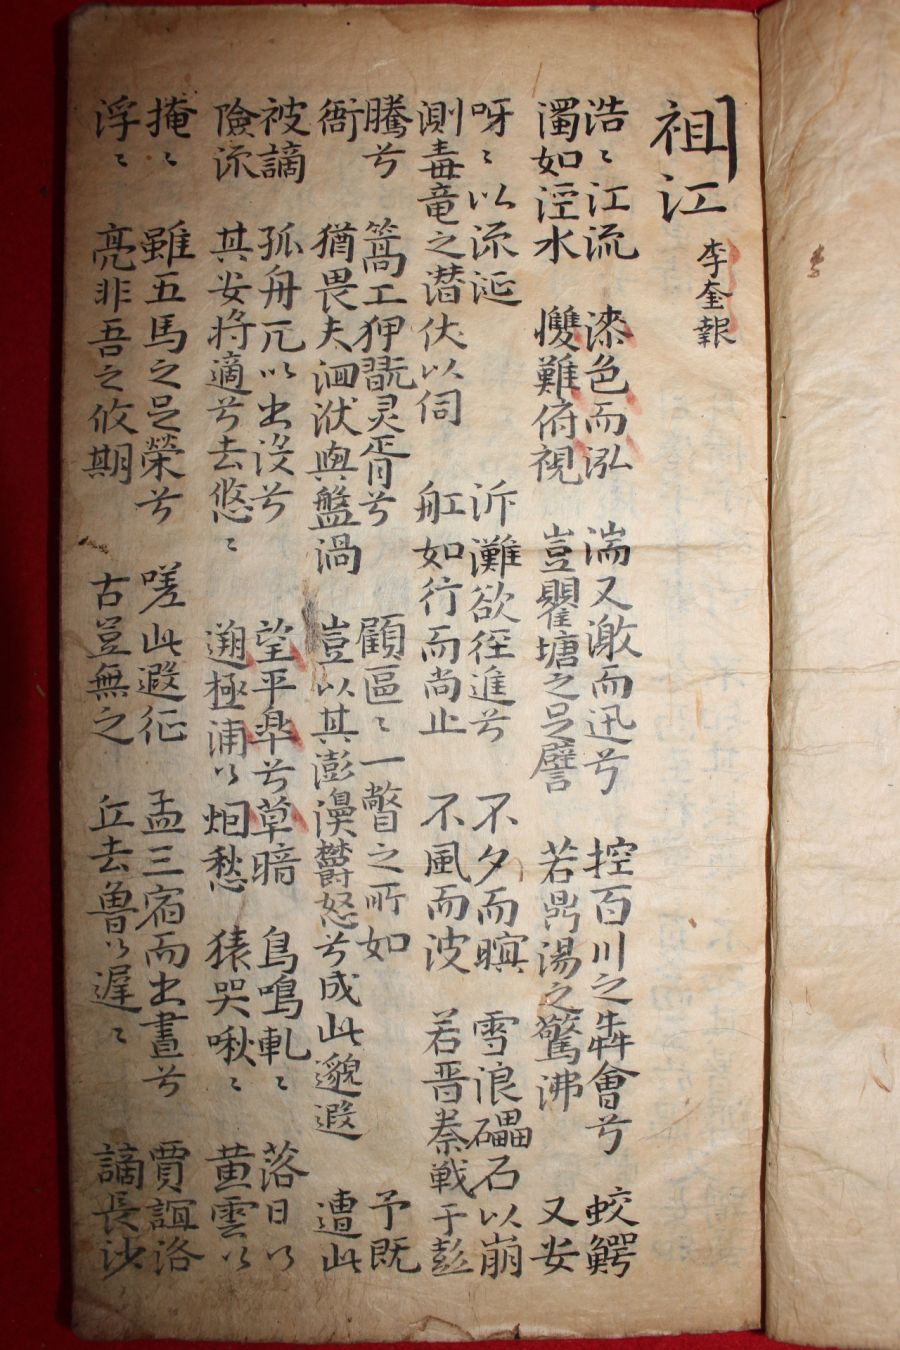 祖江 李奎報
浩〻江流 漆色而泓 湍又激而迅兮 控百川之犇會兮 蛟鰐
濁如涇水 難俯視 豈瞿塘之足譬 若鼎湯之驚沸 又安
呀〻以流涎 泝灘欲径進兮 不夕而暝 雪浪礧石以崩
測毒竜之潛伏以伺 舡如行而尚止 不風而波 若晋秦戦于彭
騰兮 篙工狎翫灵胥兮 顧區〻一瞥之所如 予既
衙 猶畏夫洄洑與盤渦 豈以其澎濞欝怒兮成此邈遐 遭此
被謫 孤舟兀以出没兮 望平皐兮草暗 鳥鳴軋〻 落日以
險流 其安將適兮去悠〻 遡極浦以烟愁 猿哭啾〻 黄雲以
掩〻 雖五馬之足榮兮 嗟此遐征 孟三宿而出晝兮 賈誼洛
浮〻 亮非吾之攸期 古豈無之 丘去魯以遲〻 謫長沙